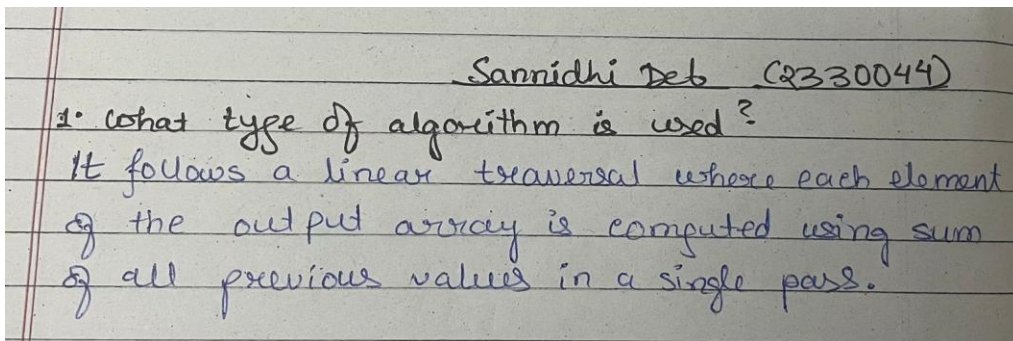 Sannidhi Deb (2330044)
1. What type of algorithm is used?
It follows a linear traversal where each element
of the output array is computed using sum
of all previous values in a single pass.